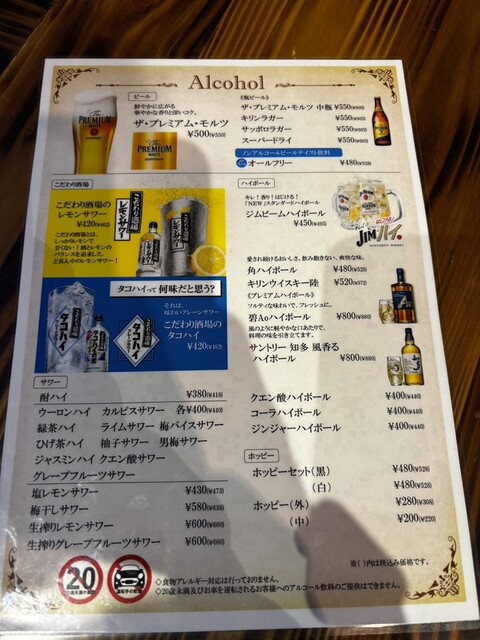 Alcohol
ビール
鮮やかに広がる
華やかな香りと深いコク。
ザ・プレミアム・モルツ
¥500(¥550)
《瓶ビール》
ザ・プレミアム・モルツ 中瓶 ¥550(¥605)
キリンラガー ¥550(¥605)
サッポロラガー ¥550(¥605)
スーパードライ ¥550(¥605)
ノンアルコールビールテイスト飲料
オールフリー ¥480(¥528)
こだわり酒場
こだわり酒場の
レモンサワー
¥420(¥462)
こだわり酒場とは、
しっかりレモンで
甘くない!酒とレモンの
バランスを追求した、
ど真ん中のレモンサワー!
タコハイって 何味だと思う?
それは、
味わいプレーンサワー
こだわり酒場の
タコハイ
¥420(¥462)
ハイボール
キレ!香り!はじける!
「NEW」スタンダードハイボール
ジムビームハイボール
¥450(¥495)
JIMハイ。
愛され続けるおいしさ。飲み飽きない、爽快な味。
角ハイボール ¥480(¥528)
キリンウイスキー陸 ¥520(¥572)
《プレミアムハイボール》
ソルティな味わいで、フレッシュに。
碧Aoハイボール ¥800(¥880)
風のように軽やかな口あたりで、
料理の味を引き立てます。
サントリー 知多 風香る
ハイボール ¥800(¥880)
クエン酸ハイボール ¥400(¥440)
コーラハイボール ¥400(¥440)
ジンジャーハイボール ¥400(¥440)
サワー
酎ハイ ¥380(¥418)
ウーロンハイ カルピスサワー 各¥400(¥440)
緑茶ハイ ライムサワー 梅バイスサワー
ひげ茶ハイ 柚子サワー 男梅サワー
ジャスミンハイ クエン酸サワー
グレープフルーツサワー
塩レモンサワー ¥430(¥473)
梅干しサワー ¥580(¥638)
生搾りレモンサワー ¥600(¥660)
生搾りグレープフルーツサワー ¥600(¥660)
ホッピー
ホッピーセット(黒) ¥480(¥528)
(白) ¥480(¥528)
ホッピー(外) ¥280(¥308)
(中) ¥200(¥220)
※( )内は税込み価格です。
◇食物アレルギー対応は行っておりません。
◇20歳未満及びお車を運転されるお客様へのアルコール飲料のご提供はできません。
20